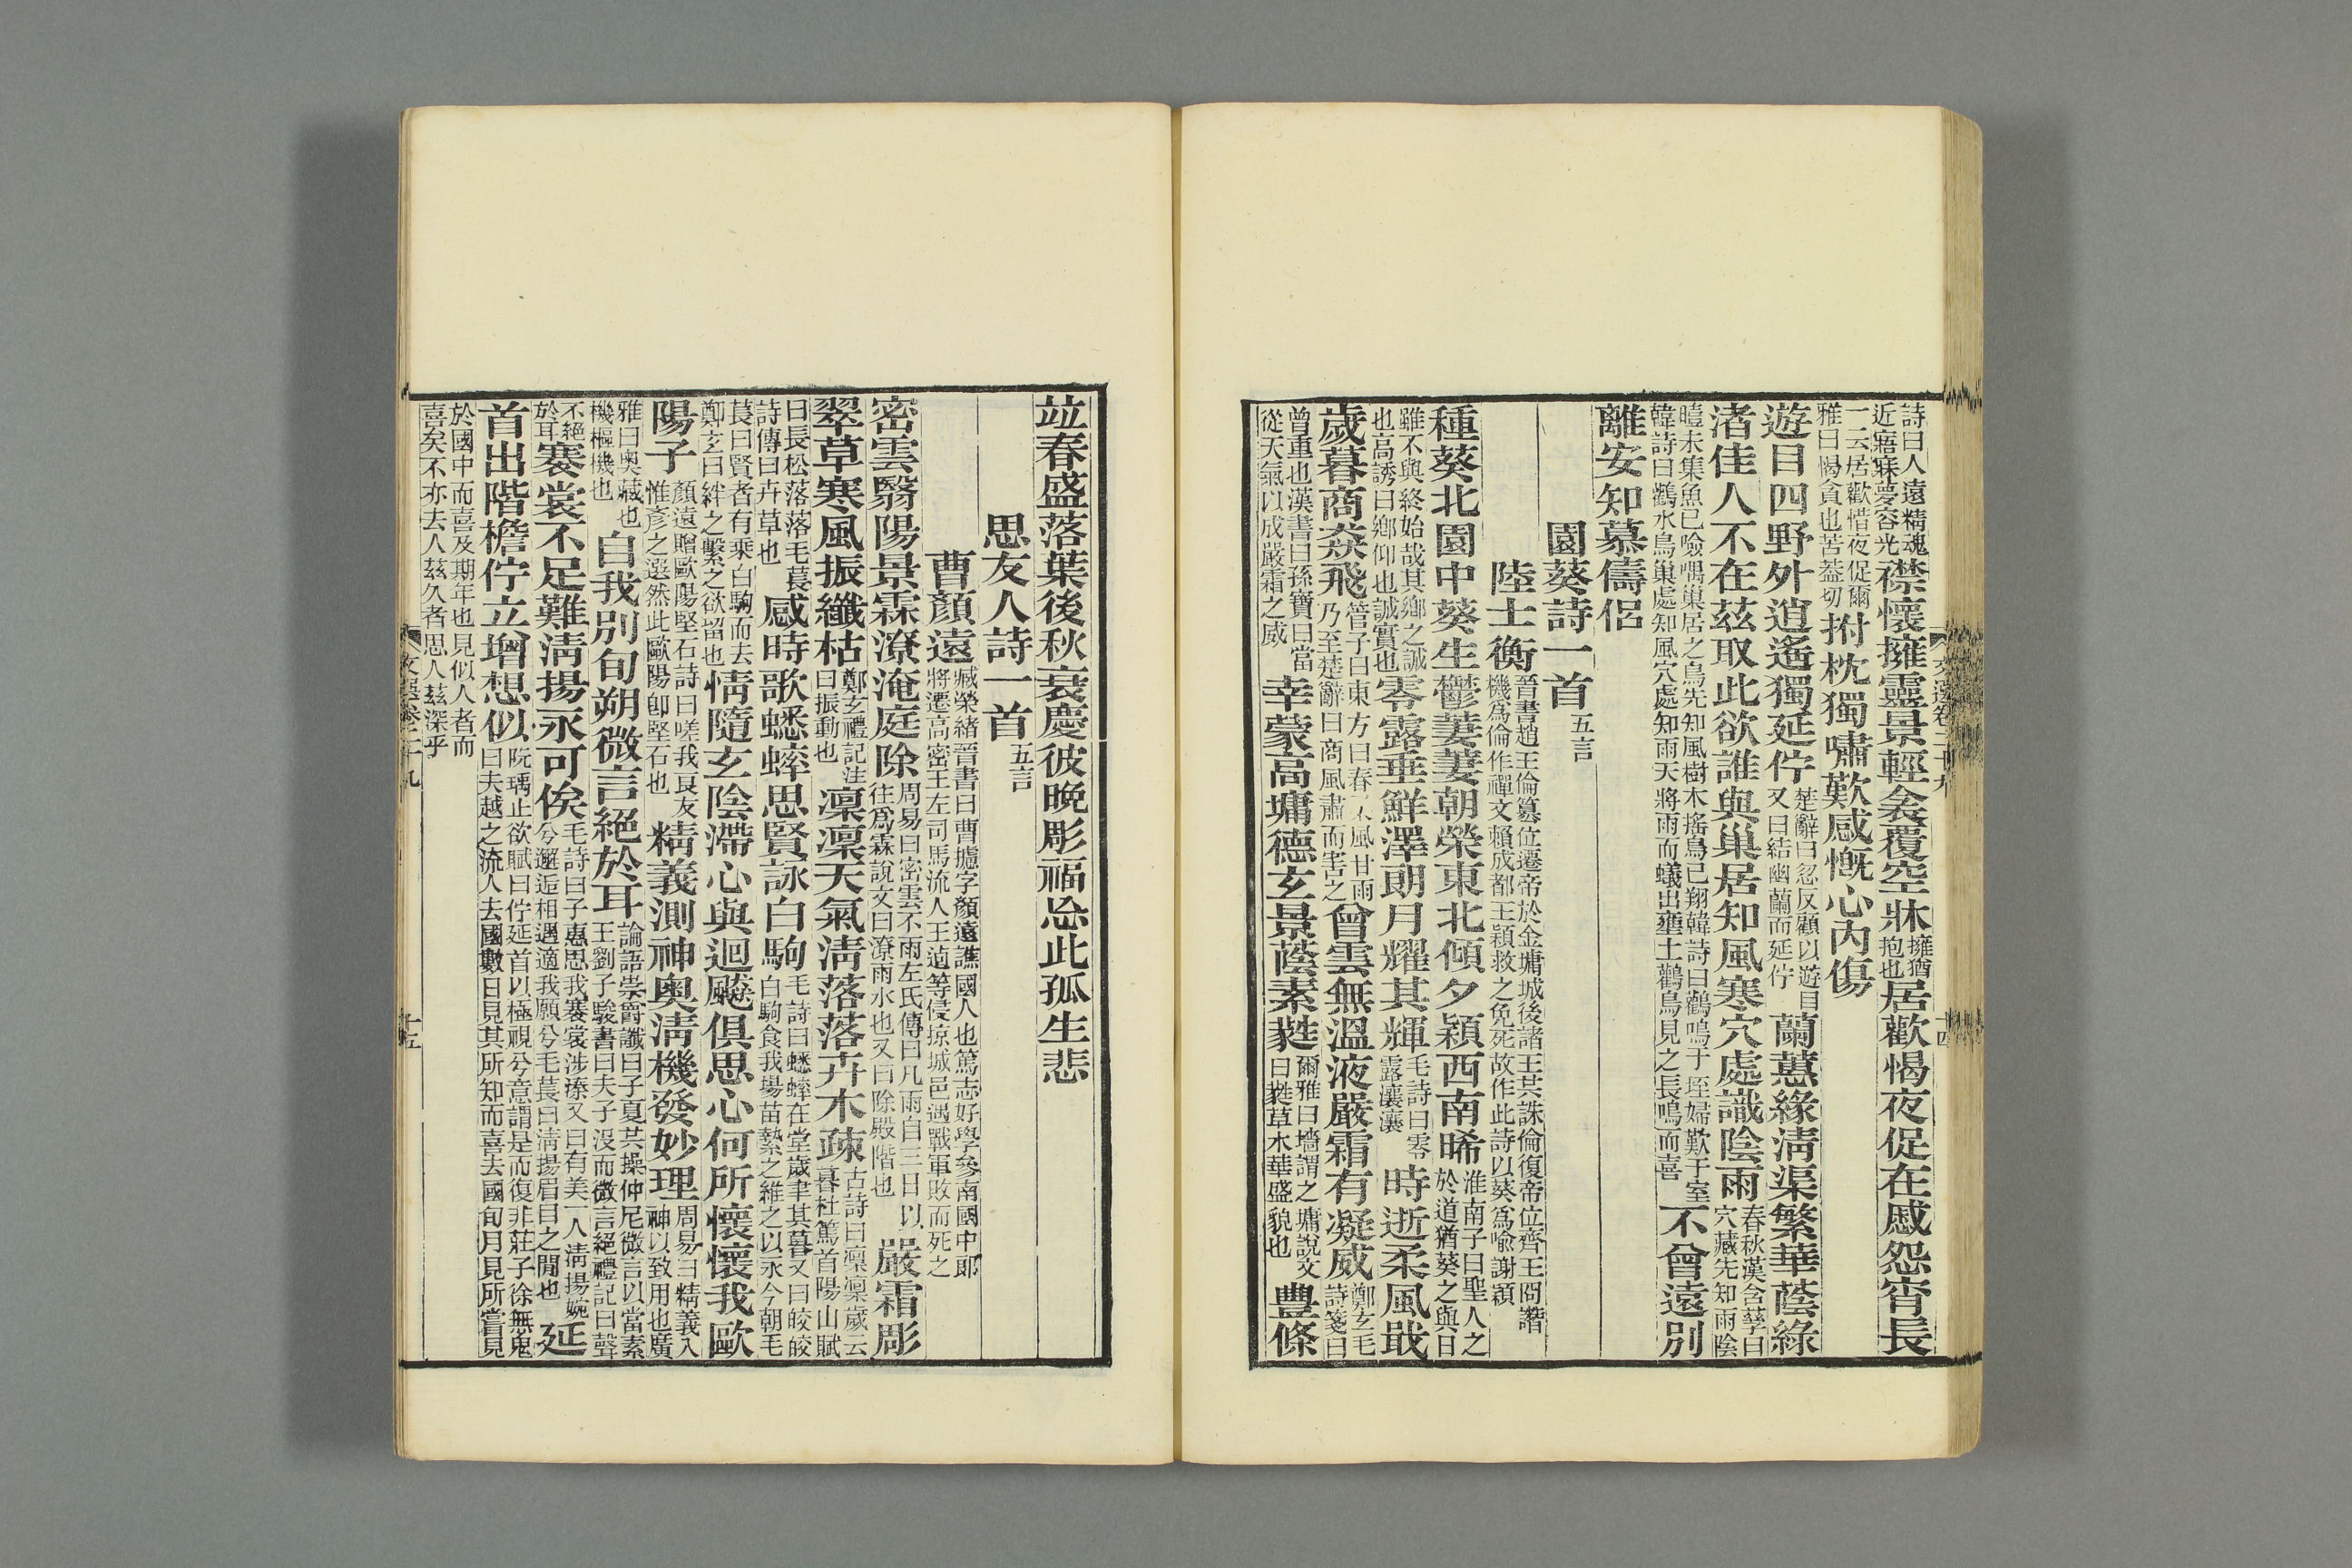 詩曰人遠精魂
近寤寐夢容光襟懷擁靈景輕衾覆空牀擁猶抱也居歡惜夜促在戚怨宵長
一云居歡惜夜促爾
雅曰愒貪也苦蓋切拊枕獨嘯歎感慨心內傷
遊目四野外逍遙獨延佇楚辭曰忽反顧以遊目又曰結幽蘭而延佇蘭蕙緣淸渠繁華蔭綠
渚佳人不在茲取此欲誰與巢居知風寒穴處識陰雨春秋漢含孳曰穴藏先知雨陰
曀未集魚已噞喁巢居之鳥先知風樹木搖鳥已翔韓詩曰鸛鳴于垤婦歎于室
韓詩曰鸛水鳥巢處知風穴處知雨天將雨而蟻出壅土鸛鳥見之長鳴而喜不曾遠別
離安知慕儔侶
園葵詩一首五言
陸士衡晉書趙王倫簒位遷帝於金墉城後諸王共誅倫復帝位齊王冏譖機爲倫作禪文賴成都王穎救之免死故作此詩以葵爲喻謝穎
種葵北園中葵生鬱萋萋朝榮東北傾夕穎西南晞淮南子曰聖人之於道猶葵之與日
雖不與終始哉其鄉之誠
也高誘曰鄉仰也誠實也零露垂鮮澤朗月耀其輝毛詩曰零露瀼瀼時逝柔風戢
歲暮商猋飛管子曰東方曰春風甘雨乃至楚辭曰商風肅而害之曾雲無溫液嚴霜有凝威鄭玄毛詩箋曰
曾重也漢書曰孫寶曰當
從天氣以成嚴霜之威幸蒙高墉德玄景蔭素蕤爾雅曰墻謂之墉說文曰蕤草木華盛貌也豐條
竝春盛落葉後秋衰慶彼晚彫福忩此孤生悲
思友人詩一首五言
曹顏遠臧榮緒晉書曰曹攄字顏遠譙國人也篤志好學參南國中郎將遷高密王左司馬流人王逌等侵掠城邑遇戰軍敗而死之
密雲翳陽景霖潦淹庭除周易曰密雲不雨左氏傳曰凡雨自三日以往爲霖說文曰潦雨水也又曰除殿階也嚴霜彫
翠草寒風振纖枯鄭玄禮記注曰振動也凛凛天氣淸落落卉木疎古詩曰凛凛歲云暮杜篤首陽山賦
曰長松落落毛萇
詩傳曰卉草也感時歌蟋蟀思賢詠白駒毛詩曰蟋蟀在堂歲聿其暮又曰皎皎白駒食我場苗縶之維之以永今朝毛
萇曰賢者有乘白駒而去
鄭玄曰絆之繫之欲留也情隨玄陰滯心與迴飈俱思心何所懷懷我歐
陽子顏遠贈歐陽堅石詩曰嗟我良友惟彥之選然此歐陽卽堅石也精義測神奧淸機發妙理周易曰精義入神以致用也廣
雅曰奧藏也
機樞機也自我別旬朔微言絕於耳論語崇爵讖曰子夏共操仲尼微言以當素王劉子駿書曰夫子沒而微言絕禮記曰聲
不絕
於耳褰裳不足難淸揚永可俟毛詩曰子惠思我褰裳涉溱又曰有美一人淸揚婉兮邂逅相遇適我願兮毛萇曰淸揚眉目之閒也延
首出階檐佇立增想似阮瑀止欲賦曰佇延首以極視兮意謂是而復非莊子徐無鬼曰夫越之流人去國數日見其所知而喜去國旬月見所嘗見
於國中而喜及期年也見似人者而
喜矣不亦去人茲久者思人茲深乎